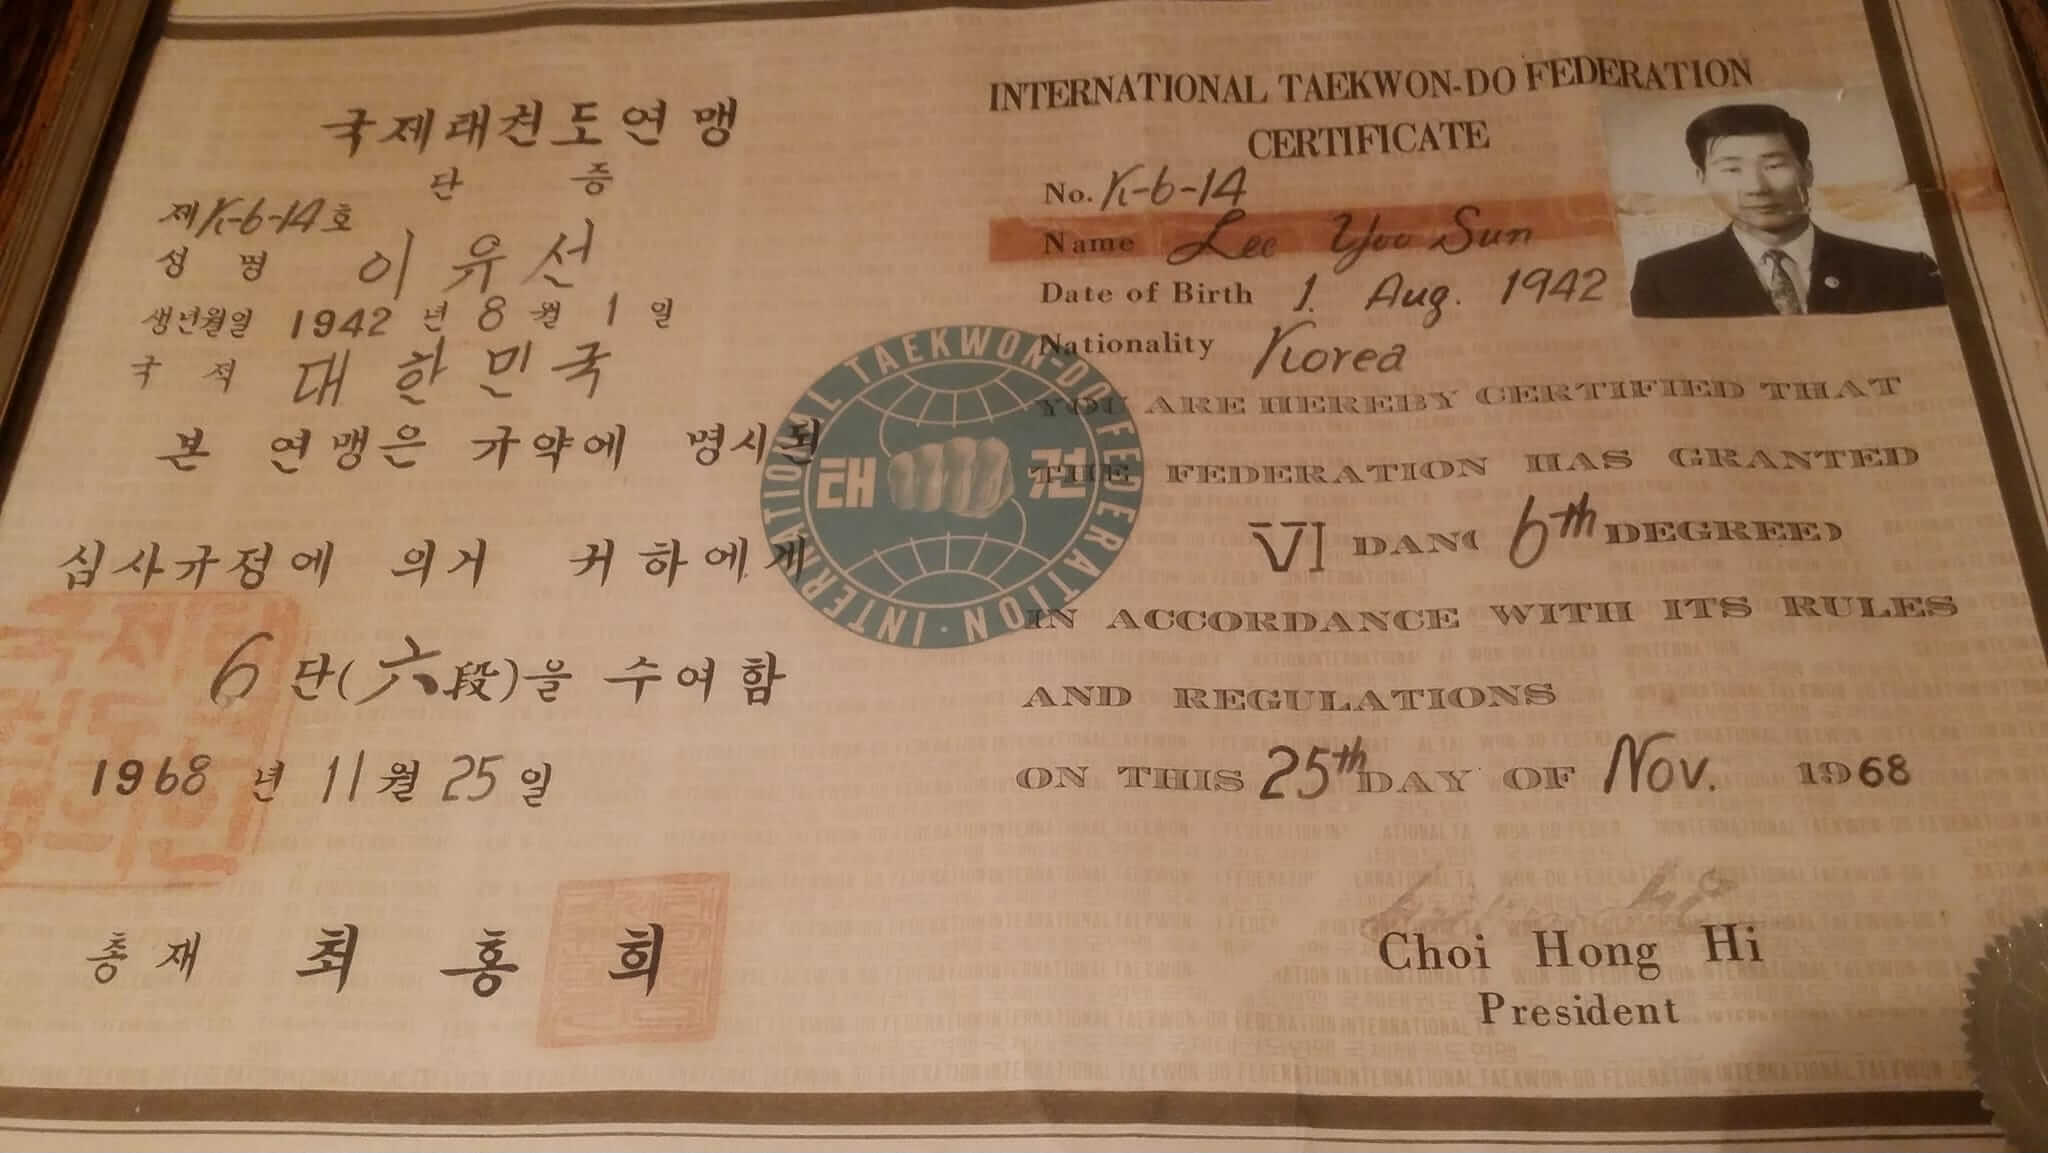 국제태권도연맹
단 증
제 K-6-14 호
성 명 이 유 선
생년월일 1942 년 8 월 1 일
국 적 대 한 민 국
본 연맹은 규약에 명시된
심사규정에 의거 귀하에게
6 단(六段)을 수여함
1968 년 11 월 25 일
총 재 최 홍 희
INTERNATIONAL TAEKWON-DO FEDERATION
태 권
INTERNATIONAL TAEKWON-DO FEDERATION
CERTIFICATE
No. K-6-14
Name Lee Yoo Sun
Date of Birth 1. Aug. 1942
Nationality Korea
YOU ARE HEREBY CERTIFIED THAT
THE FEDERATION HAS GRANTED
VI DAN( 6th DEGREE)
IN ACCORDANCE WITH ITS RULES
AND REGULATIONS
ON THIS 25th DAY OF Nov. 1968
Choi Hong Hi
President